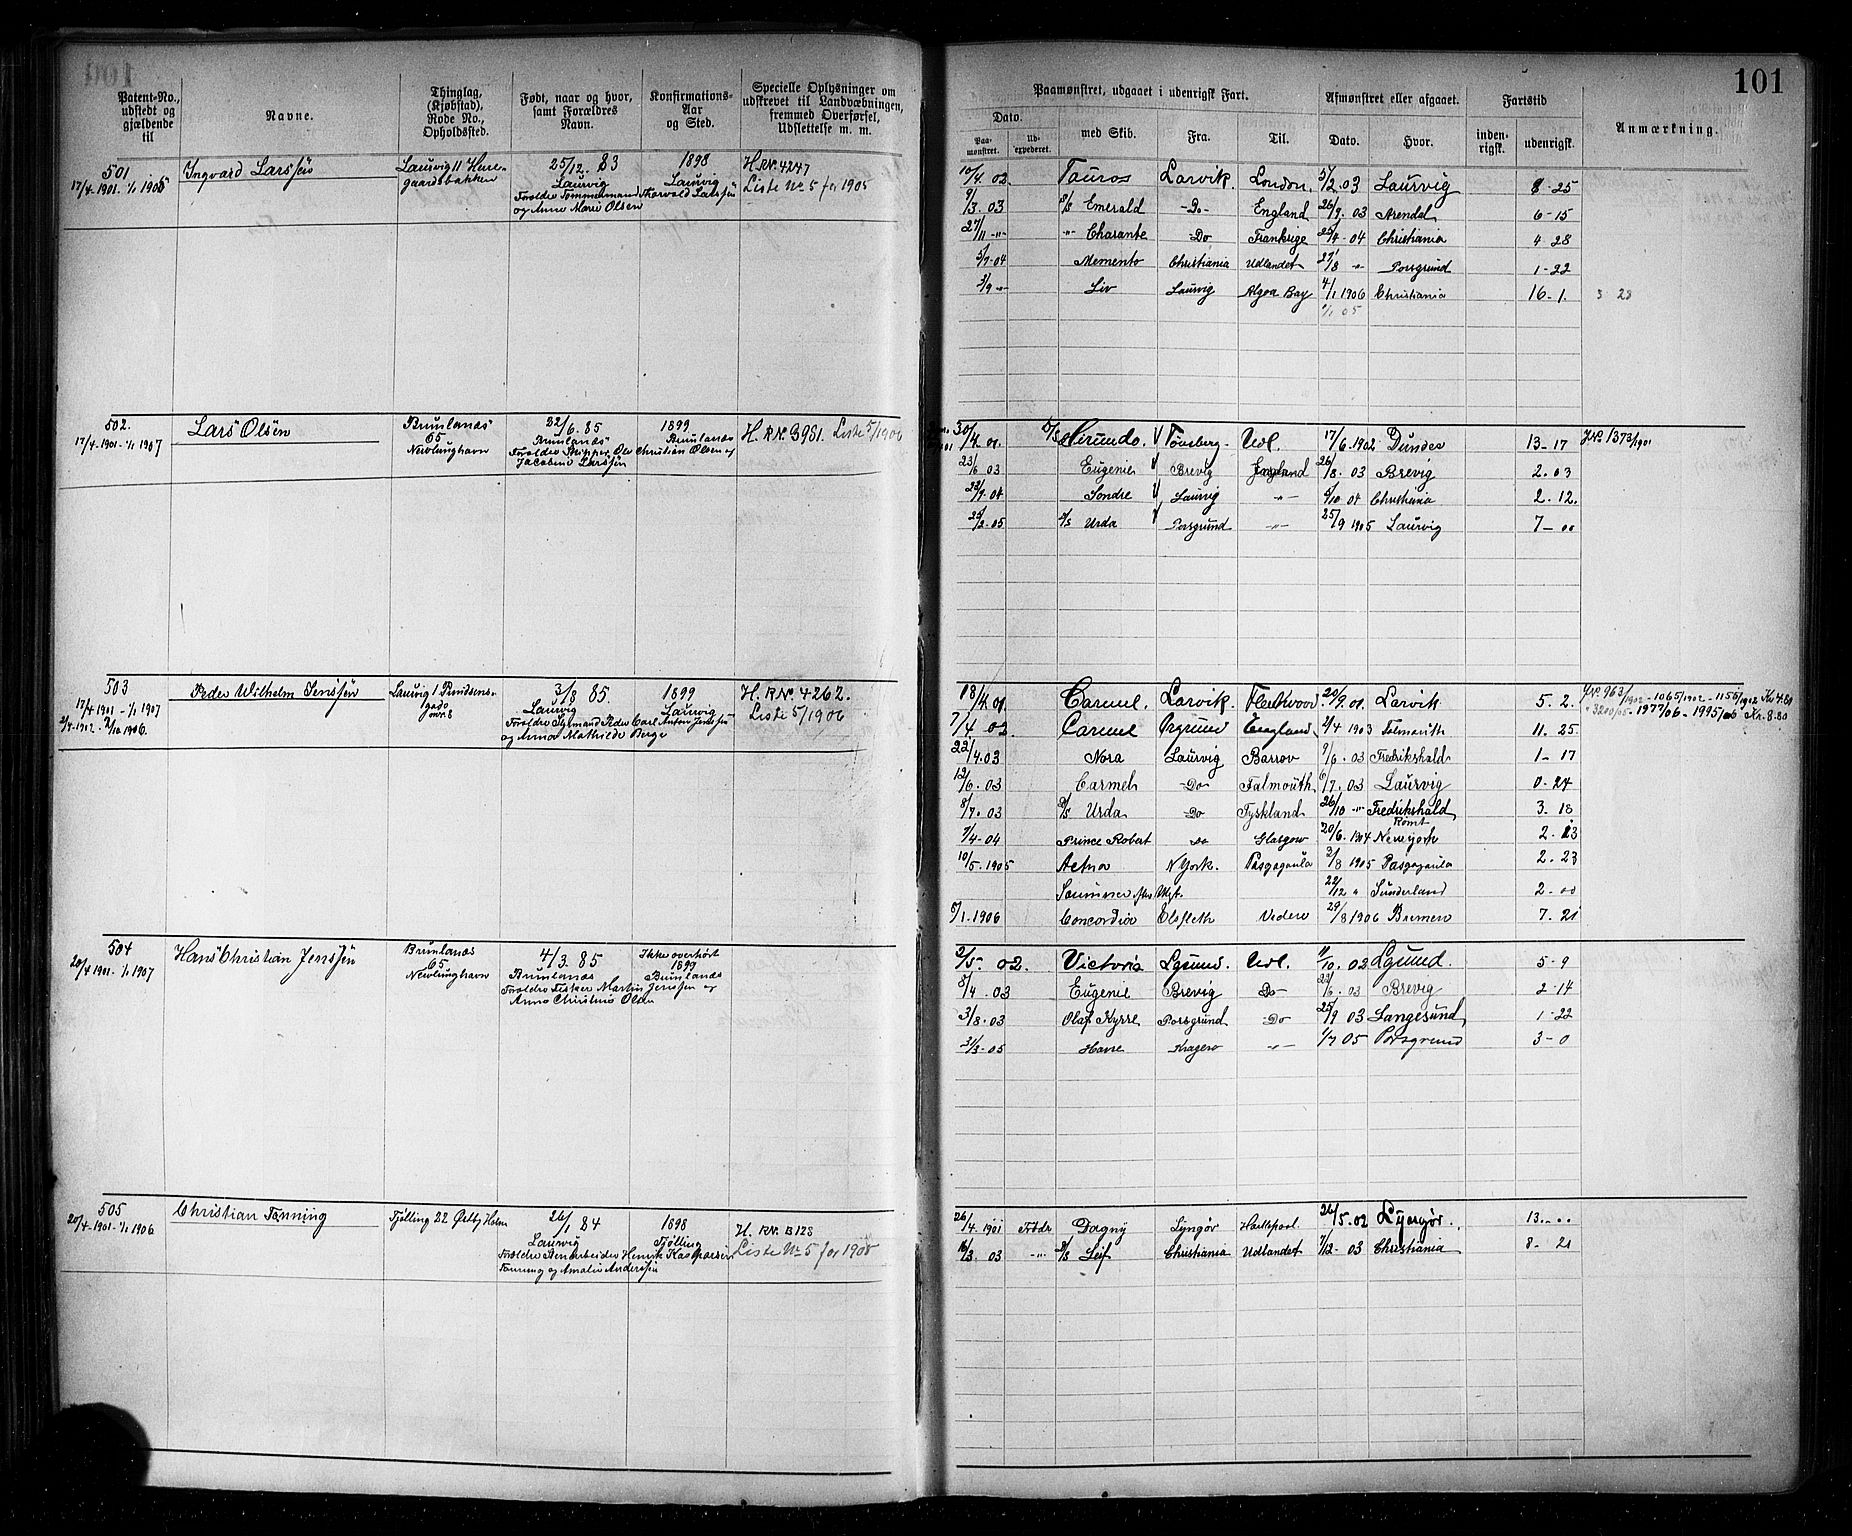 101
Patent-No., udstedt og gjældende til
Navne.
Thinglag, (Kjøbstad), Rode No., Opholdssted.
Født, naar og hvor, samt Forældres Navn.
Konfirmations-Aar og Sted.
Specielle Oplysninger om udskrevet til Landvæbningen, fremmed Overførsel, Udslettelse m. m.
Paamønstret, udgaaet i udenrigsk Fart.
Afmønstret eller afgaaet.
Fartstid
Anmærkning.
Dato.
Paa-monstret.
Ud-expederet.
med Skib.
Fra.
Til.
Dato.
Hvor.
inden-rigsk.
udenrigsk.
501
17/4-1901-1/1 1906
Ingvard Larssen
Laurvig 11 Herre-
gaardsbakken
25/12. 83
Laurvig
1898
Laurvig
Forældre Tømmermand Thorvald Larssen
og Anne Marie Olsen
H. RNº. 4247
Liste Nº 5 for 1905
10/4. 02. Tauros Larvik. London. 5/2. 03 Laurvig 8-25
9/3. 03 S/S Emerald -Do- England 26/9. 03 Arendal 6-15
27/11 -"- -"- Charante -Do Frankrige 25/4-04 Christiania 4 28
5/7-04 Memento Christiania Udlandet 27/8 -"- Porsgrund 1-22
3/9 -"- Liv Laurvig Algoa Bay 4/1 1906 Christiania 16-1. 3 23
1/1 05
502.
17/4-1901-1/1 1907
Lars Olsen
Brunlanæs
65
Nevlunghavn
22/6. 85
Brunlanæs
1899
Brunlanæs
Forældre Skipper Ole Christian Olsen og
Jacobine Larssen
H. RNº. 3981. Liste 5/1906
30/4. 01. D/S Hirundo. Tønsberg. Udl. 17/6. 1902 Dundee 13-17 JNº. 1373/1901
23/6 03 Eugenie Brevig England 26/8. 03 Brevig 2. 03
22/7. 04 Sondre Laurvig -"- 6/10 04 Christiania 2-12.
25/2-05 S/S Urda Porsgrund -"- 25/9 1905 Laurvig 7-00
503
17/4-1901-1/1 1907
Peder Wilhelm Jenssen
Laurvig 1
3/8 85.
Laurvig
1899
Laurvig
Forældre Sjømand Peder Carl Anton Jenssen
og Anna Mathilde Berge
H. RNº. 4262.
Liste 5/1906
18/4. 01. Carmel. Larvik. Fleetwood. 20/9. 01. Larvik. 5. 2. JNº. 963/1902-1065/1902-1156/1902 Kr. 4.80
3200/05-1977/06-1995/06 Kr. 8.80
7/4. 02. Carmel England. 2/4 1903 Falmouth 11. 25.
22/4. 03 Nora Laurvig Barrow 9/6. 03 Fredrikshald 1-17
12/6. 03 Carmel -Do- Falmouth. 6/7. 03 Laurvig 0-24
8/7. 03 S/S Urda -Do- Tyskland 26/10 -"- Fredrikshald 3. 18
7/4-04 Prince Robert -Do- Glasgow 20/6. 1904 Newyork Rømt 2-13
10/5. 1905 Aetna N York. Pasgagoula 2/8 1905 Pasgagoula 2-23
22/12 " Sunderland 2-00
8/1. 1906 Concordia Elsfleth Videre 29/8 1906 Bremen 7. 21
504
20/4-1901-1/1 1907
Hans Christian Jenssen
Brunlanæs
65
Nevlunghavn
4/3. 85
Brunlanæs
Ikke overhørt
1899
Brunlanæs
Forældre Fisker Martin Jenssen og
Anne Christine Olsen
2/5. 02. Victoria Lgsund. Udl. 11/10. 02 Lgsund. 5-9
8/4. 03 Eugenie Brevig -Do- 22/6. 03 Brevig 2-14
3/8. 03 Olaf Kyrre Porsgrund -Do- 25/9 03 Langesund, 1-22
31/3-05 Havre Kragerø -"- 1/7 05 Porsgrund 3-0
505
20/4-1901-1/1 1906
Christian Tønning
Tjølling 22 Østby Holm
26/1 84
Laurvig
1898
Tjølling
Henrik Kasparsen
Tønning og Amalie Anderssen
H. RNº. B 128
Liste Nº 5 for 1905
26/4. 1901 Dagny Lyngør Hartlepool 26/5. 02 Lyngør. 13-00
16/3. 03 -"- S/S Leif Christiania Udlandet 7/12-03 Christiania 8-21